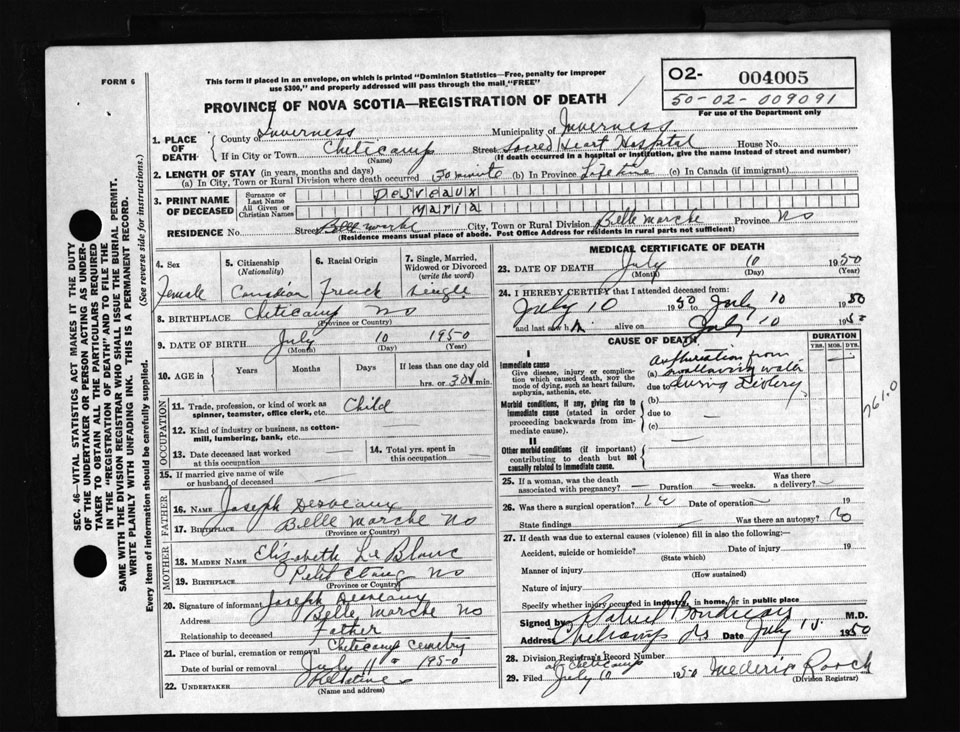 FORM 6
This form if placed in an envelope, on which is printed "Dominion Statistics—Free, penalty for improper
use $300," and properly addressed will pass through the mail "FREE"
PROVINCE OF NOVA SCOTIA—REGISTRATION OF DEATH
02- 004005
50-02-009091
For use of the Department only
SEC. 46—VITAL STATISTICS ACT MAKES IT THE DUTY
OF THE UNDERTAKER OR PERSON ACTING AS UNDER-
TAKER TO OBTAIN ALL THE PARTICULARS REQUIRED
IN THE "REGISTRATION OF DEATH" AND TO FILE THE
SAME WITH THE DIVISION REGISTRAR WHO SHALL ISSUE THE BURIAL PERMIT.
WRITE PLAINLY WITH UNFADING INK. THIS IS A PERMANENT RECORD.
Every item of information should be carefully supplied. (See reverse side for instructions.)
1. PLACE OF DEATH County of Inverness Municipality of Inverness
If in City or Town Cheticamp Street Sacred Heart Hospital House No.
(Name) (If death occurred in a hospital or institution, give the name instead of street and number)
2. LENGTH OF STAY (in years, months and days)
(a) In City, Town or Rural Division where death occurred 30 minute (b) In Province Life time (c) In Canada (if immigrant)
3. PRINT NAME OF DECEASED Surname or Last Name Desveaux
All Given or Christian Names Maria
RESIDENCE No. Street Belle Marche City, Town or Rural Division Belle Marche Province NS
(Residence means usual place of abode. Post Office Address for residents in rural parts not sufficient)
4. Sex Female
5. Citizenship (Nationality) Canadian
6. Racial Origin French
7. Single, Married, Widowed or Divorced (write the word) Single
8. BIRTHPLACE Cheticamp NS
(Province or Country)
9. DATE OF BIRTH July 10 1950
(Month) (Day) (Year)
10. AGE in Years Months Days If less than one day old
hrs. or 30 min.
OCCUPATION
11. Trade, profession, or kind of work as spinner, teamster, office clerk, etc. Child
12. Kind of industry or business, as cotton-mill, lumbering, bank, etc.
13. Date deceased last worked at this occupation
14. Total yrs. spent in this occupation
15. If married give name of wife or husband of deceased
FATHER
16. NAME Joseph Desveaux
17. BIRTHPLACE Belle Marche NS
(Province or Country)
MOTHER
18. MAIDEN NAME Elizabeth Le Blanc
19. BIRTHPLACE Petit Etang NS
(Province or Country)
20. Signature of informant Joseph Desveaux
Address Belle Marche NS
Relationship to deceased Father
21. Place of burial, cremation or removal Cheticamp Cemetry
Date of burial or removal July 11 1950
22. UNDERTAKER
(Name and address)
MEDICAL CERTIFICATE OF DEATH
23. DATE OF DEATH July 10 1950
(Month) (Day) (Year)
24. I HEREBY CERTIFY that I attended deceased from
July 10 1950 to July 10 1950
and last saw h alive on July 10 1950
CAUSE OF DEATH
DURATION
YRS. MOS. DYS.
I
Immediate cause
Give disease, injury or complication which caused death, NOT the mode of dying, such as heart failure, asphyxia, asthenia, etc.
(a) from swallowing water
due to during
Morbid conditions, if any, giving rise to immediate cause (stated in order proceeding backwards from immediate cause).
(b)
due to
(c)
II
Other morbid conditions (if important) contributing to death but not causally related to immediate cause.
761.0
25. If a woman, was the death associated with pregnancy? Duration weeks. Was there a delivery?
26. Was there a surgical operation? Date of operation 19
State findings Was there an autopsy? No
27. If death was due to external causes (violence) fill in also the following:—
Accident, suicide or homicide? Date of injury 19
(State which)
Manner of injury
(How sustained)
Nature of injury
Specify whether injury occurred in industry, in home, or in public place
Signed by M.D.
Address Cheticamp NS Date July 1950
28. Division Registrar's Record Number
at Cheticamp
29. Filed July 10 1950 Mederic Roach
(Division Registrar)